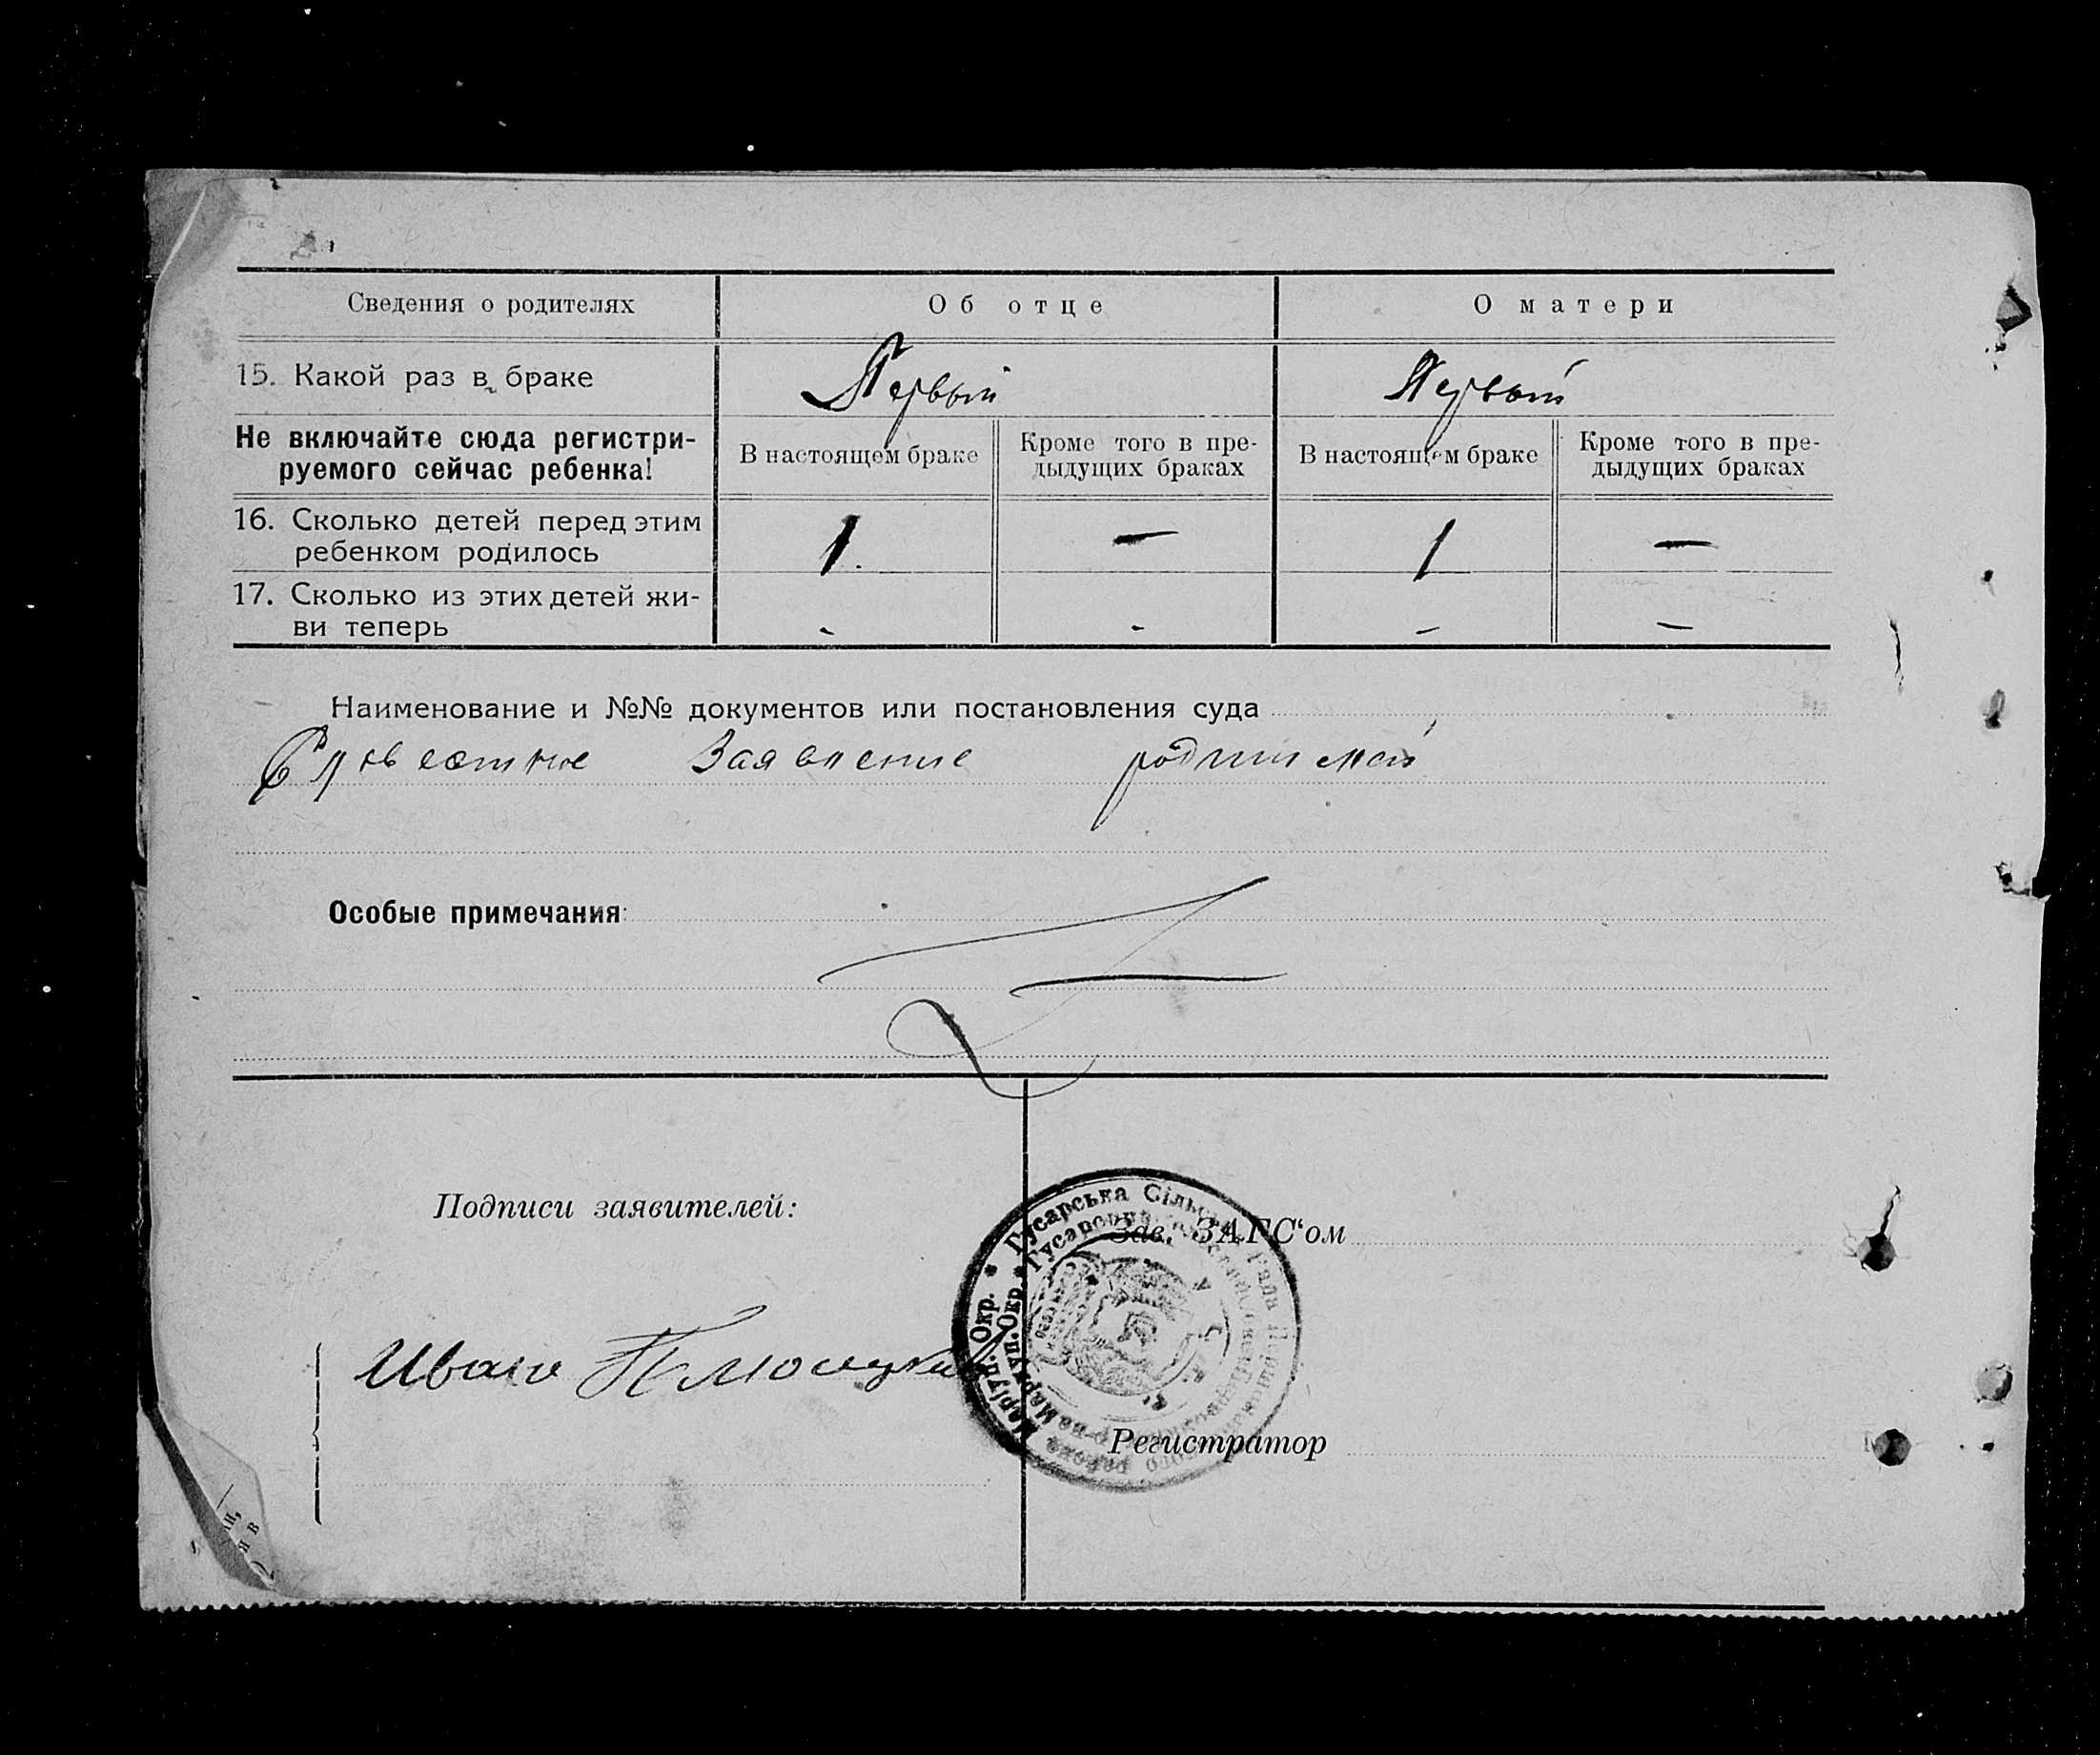 Сведения о родителях
Об отце
О матери
15. Какой раз в браке
Первый
Первый
Не включайте сюда регистри-
руемого сейчас ребенка!
В настоящем браке
Кроме того в пре-
дыдущих браках
В настоящем браке
Кроме того в пре-
дыдущих браках
16. Сколько детей перед этим
ребенком родилось
1.
—
1
—
17. Сколько из этих детей жи-
ви теперь
-
-
-
—
Наименование и №№ документов или постановления суда
Словестное Заявление родителей
Особые примечания:
Подписи заявителей:
Зав. ЗАГС‘ом
Иван
Регистратор
Гусарська Сільська Рада
Маріуп. Окр.
Маріуп. Окр.